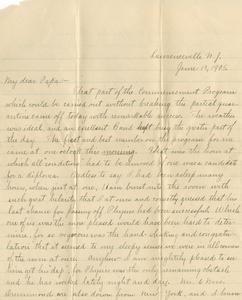 Lawrenceville N.J.
June 19, 1905
My dear Papa:-
That part of the Commencement Program
which could be carried out without breaking the partial quar-
antine came off today with remarkable success. The weather
was ideal, and an excellent Band kept busy the greater part of
the day. The first and best number on the program for me
came at one o'clock this morning. That was the hour at
which all conditions had to be removed if one was a candidate
for a diploma. Needless to say I had been asleep many
hours, when just at one, Ham burst into the room with
such great that I at once and correctly guessed that his
last chance for passing off Physics had been successful. Which
one of us was the more pleased would have been hard to deter-
mine, for so vigorous was the hand-shaking and congratu-
lation that it seemed to my sleepy sense we were in all rooms
of the inn at once. Anyhow I am mightily pleased to see
him out his day, for Physics was the only remaining obstacle
and he has worked lately night and day. Mr. & Mrs.
Drummond are also down from New York, and I have